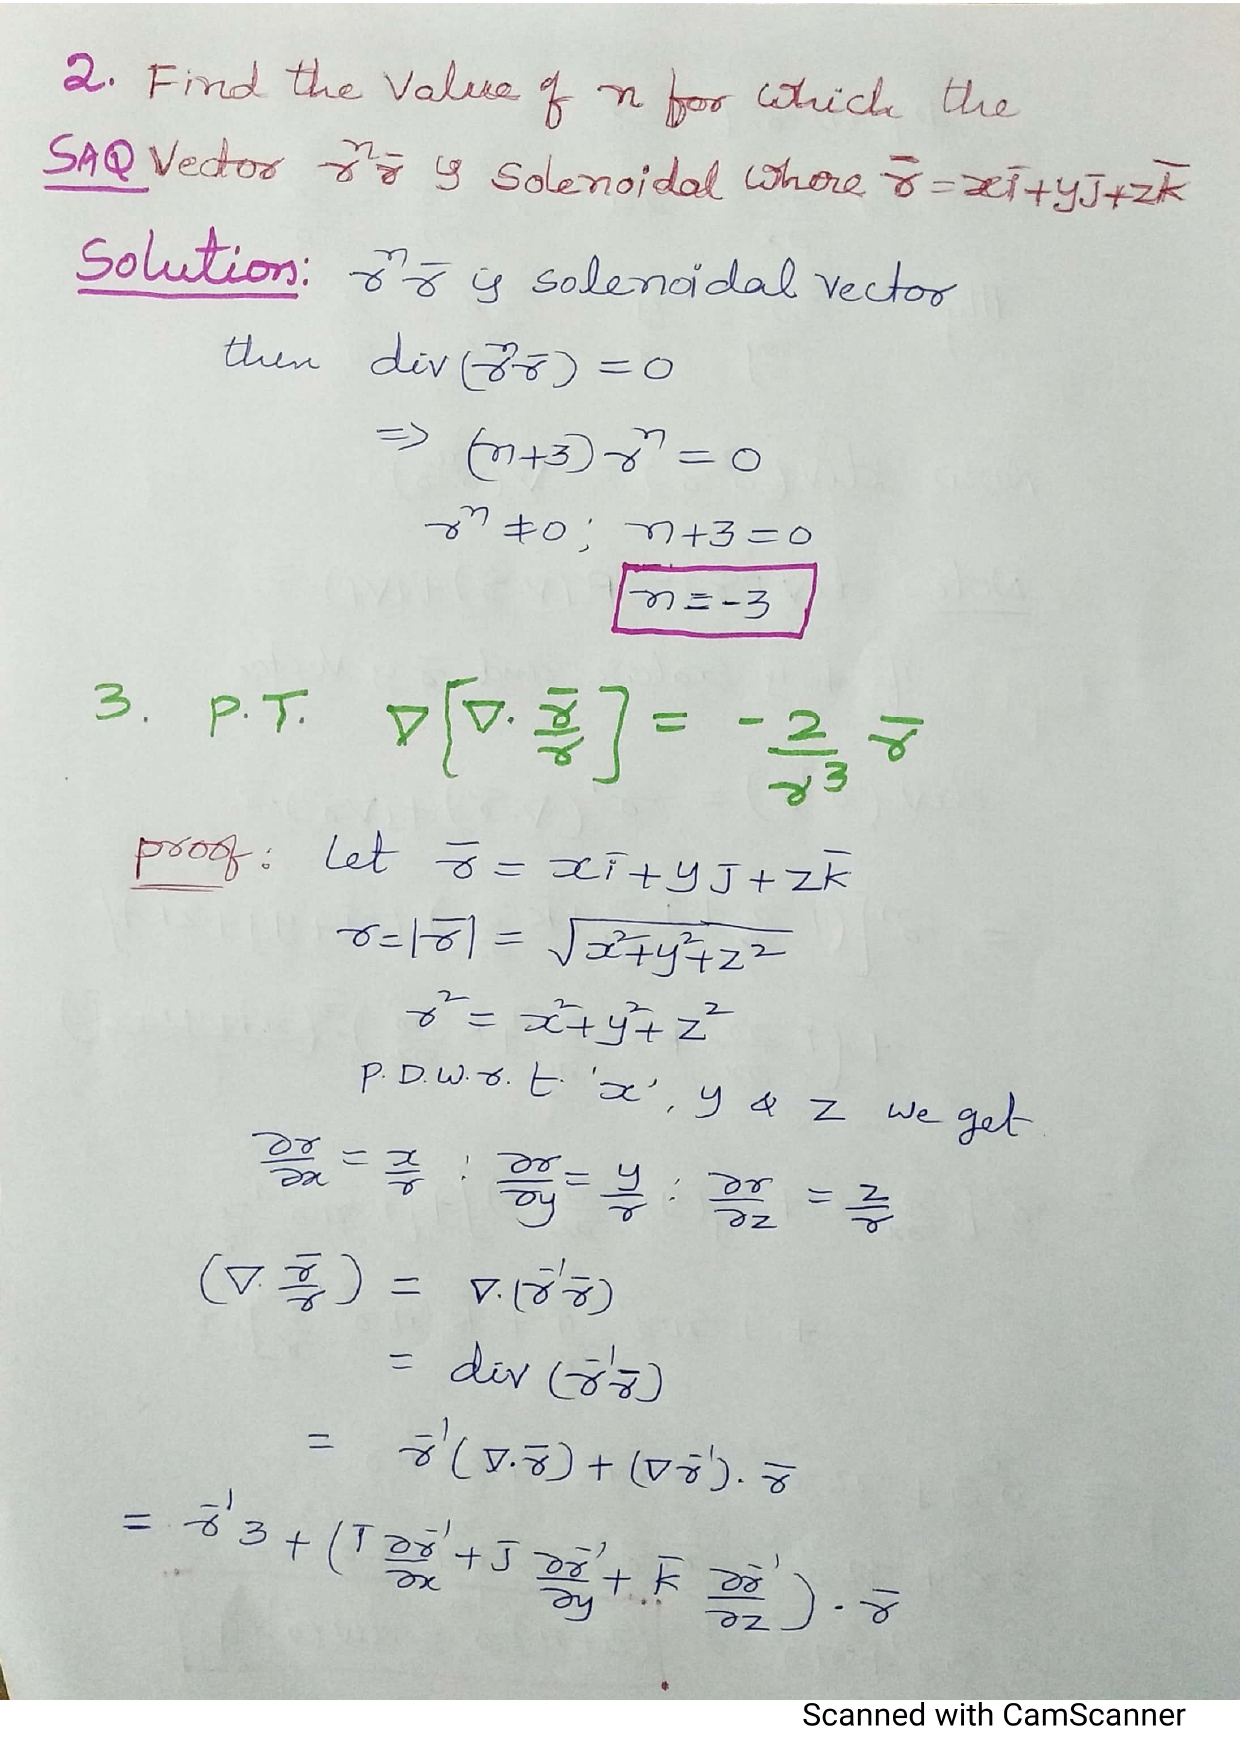 2. Find the Value of n for which the
SAQ Vector rⁿr̄ is Solenoidal where r̄ = xī+yj̄+zk̄
Solution: rⁿr̄ is solenoidal vector
then div(rⁿr̄) = 0
⇒ (n+3)rⁿ = 0
rⁿ ≠ 0; n+3 = 0
n = -3
3. P.T. ∇[∇. r̄/r] = -2/r³ r̄
proof: Let r̄ = xī + yj̄ + zk̄
r = |r̄| = √x²+y²+z²
r² = x²+y²+z²
P.D.W.r.t. 'x', y & z we get
∂r/∂x = x/r : ∂r/∂y = y/r : ∂r/∂z = z/r
(∇. r̄/r) = ∇.(r⁻¹r̄)
= div (r⁻¹r̄)
= r⁻¹(∇.r̄) + (∇r⁻¹). r̄
= r⁻¹3 + (ī ∂r⁻¹/∂x + j̄ ∂r⁻¹/∂y + k̄ ∂r⁻¹/∂z) . r̄
Scanned with CamScanner